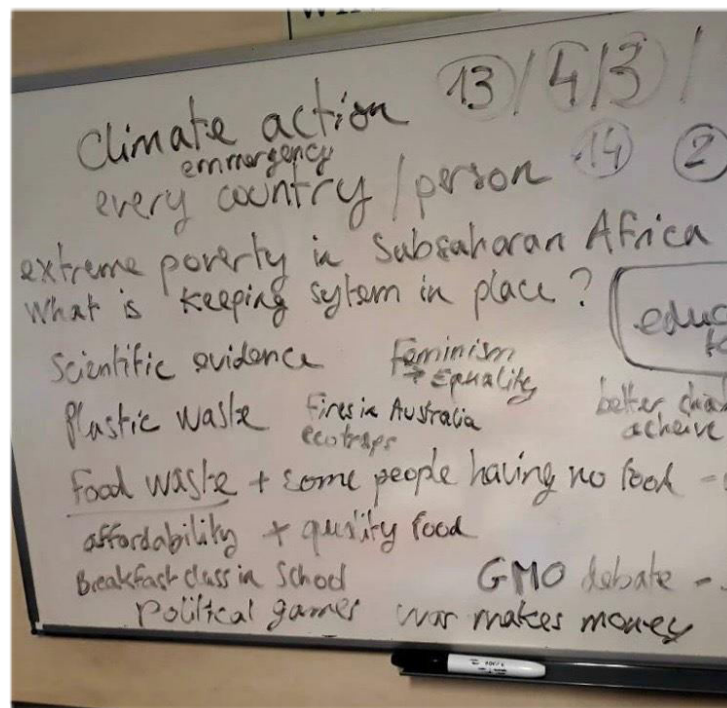 climate action 13 / 4 / 3 /
emmergency
every country / person 14 2
extreme poverty in Subsaharan Africa
What is keeping sytem in place?
educ
scientific evidence Feminism
→ Equality
Plastic waste Fires in Australia
ecotraps
better
acheive
food waste + some people having no food -
affordability + quality food
Breakfast class in School GMO debate -
Political games war makes money